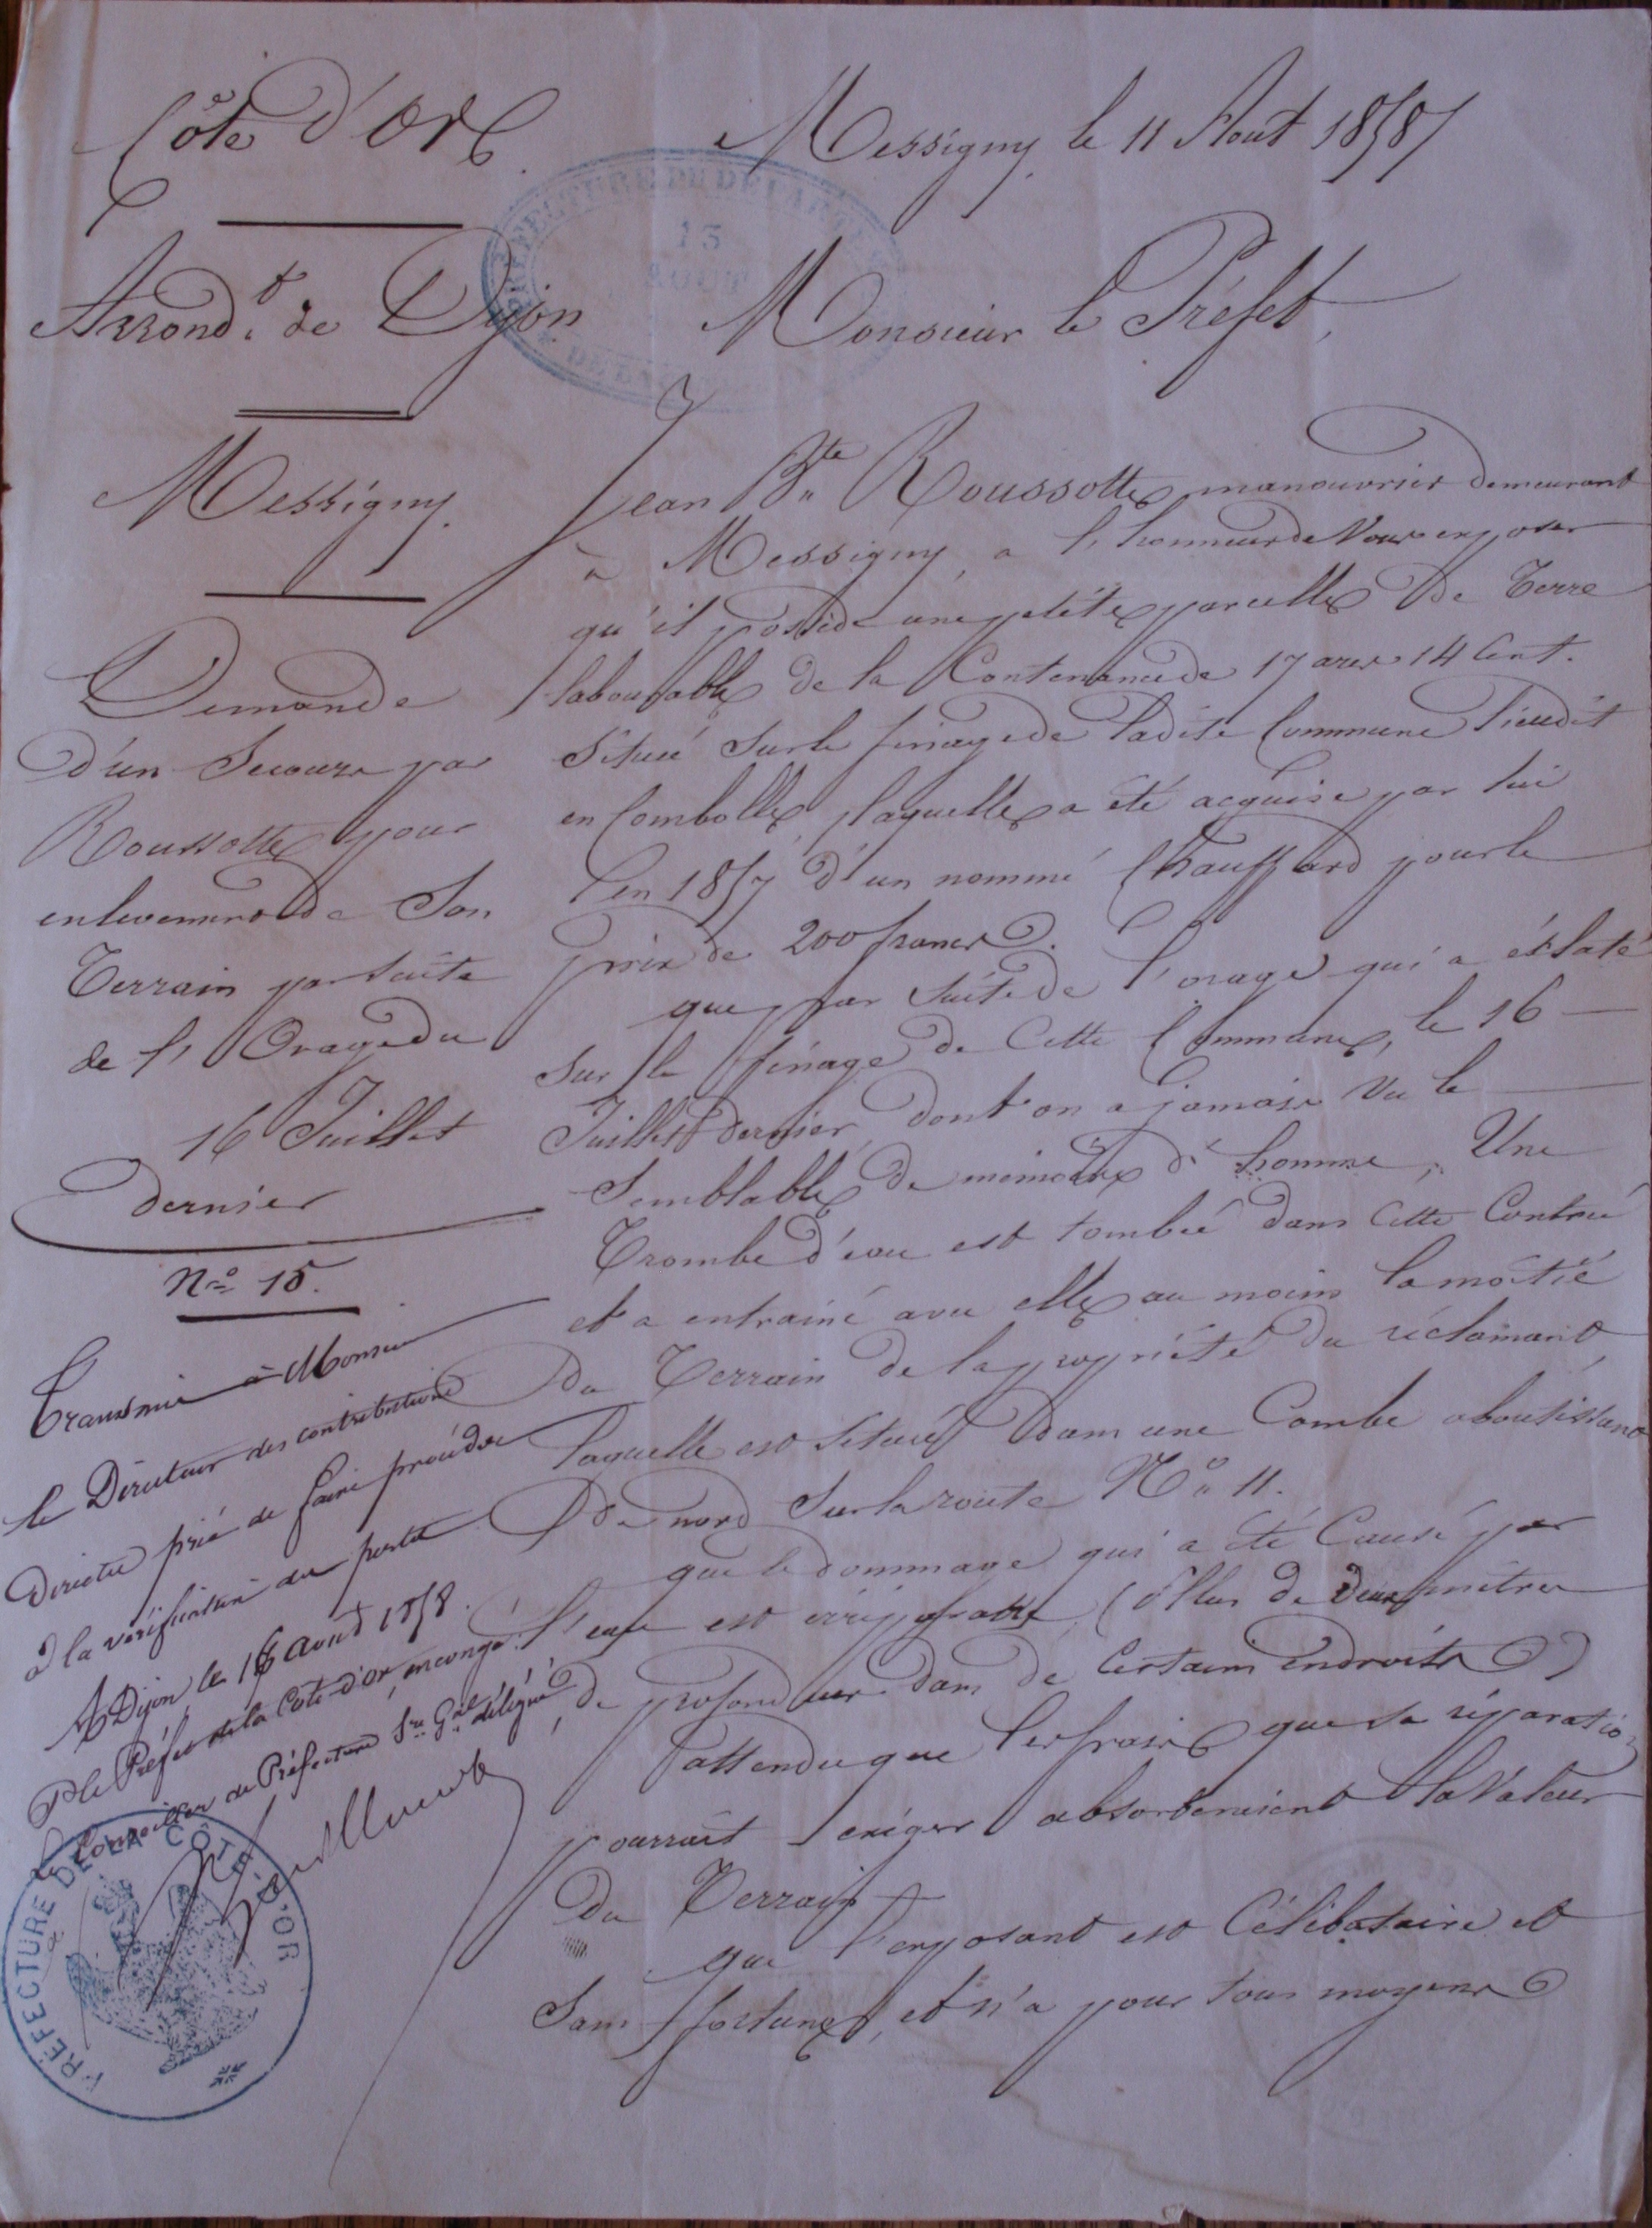 Côte d'Or
Arrond.t de Dijon
Messigny
Demande
d'un Secours par
Roussotte pour
enlevement de Son
Terrain par Suite
de l'Orage du
16 Juillet
dernier
N.o 15.
Transmis à Monsieur
le Directeur des contributions
directes prié de faire procéder
à la vérification des pertes
A Dijon, le 16 aout 1858.
P. le Préfet de la Côte-d'Or, en congé
le Conseiller de Préfecture S.re G.al délégué
PRÉFECTURE DE LA CÔTE-D'OR
Messigny le 11 Aout 1858
PREFECTURE DU DEPARTEMENT
13
AOUT
Monsieur le Préfet,
Jean B.te Roussotte, manouvrier demeurant
à Messigny, a l'honneur de Vous exposer
qu'il possède une petite parcelle de Terre
labourable de la Contenance de 17 ares 14 Cent.
Situé Sur le finage de ladite Commune lieudit
en Combolle, laquelle a été acquise par lui
en 1857 d'un nommé Chauffard pour le
prix de 200 francs.
que par Suite de l'orage qui a éclaté
Sur le finage de Cette Commune, le 16
Juillet dernier, dont on a jamais Vu le
Semblable de mémoire d'homme, Une
Trombe d'eau est tombée dans Cette Contrée
et a entrainé avec elle au moins la moitié
du Terrain de la propriété du réclamant,
laquelle est Située dans une Combe aboutissant
De nord Sur la route N.o 11.
que le dommage qui a été Causé par
l'eau est irréparable (Plus de deux mètres
de profondeur dans de Certains endroits)
attendu que les frais que sa réparation
pourrait exiger absorberaient la Valeur
du Terrain
que l'exposant est Célibataire et
Sans fortune, et n'a pour tous moyens